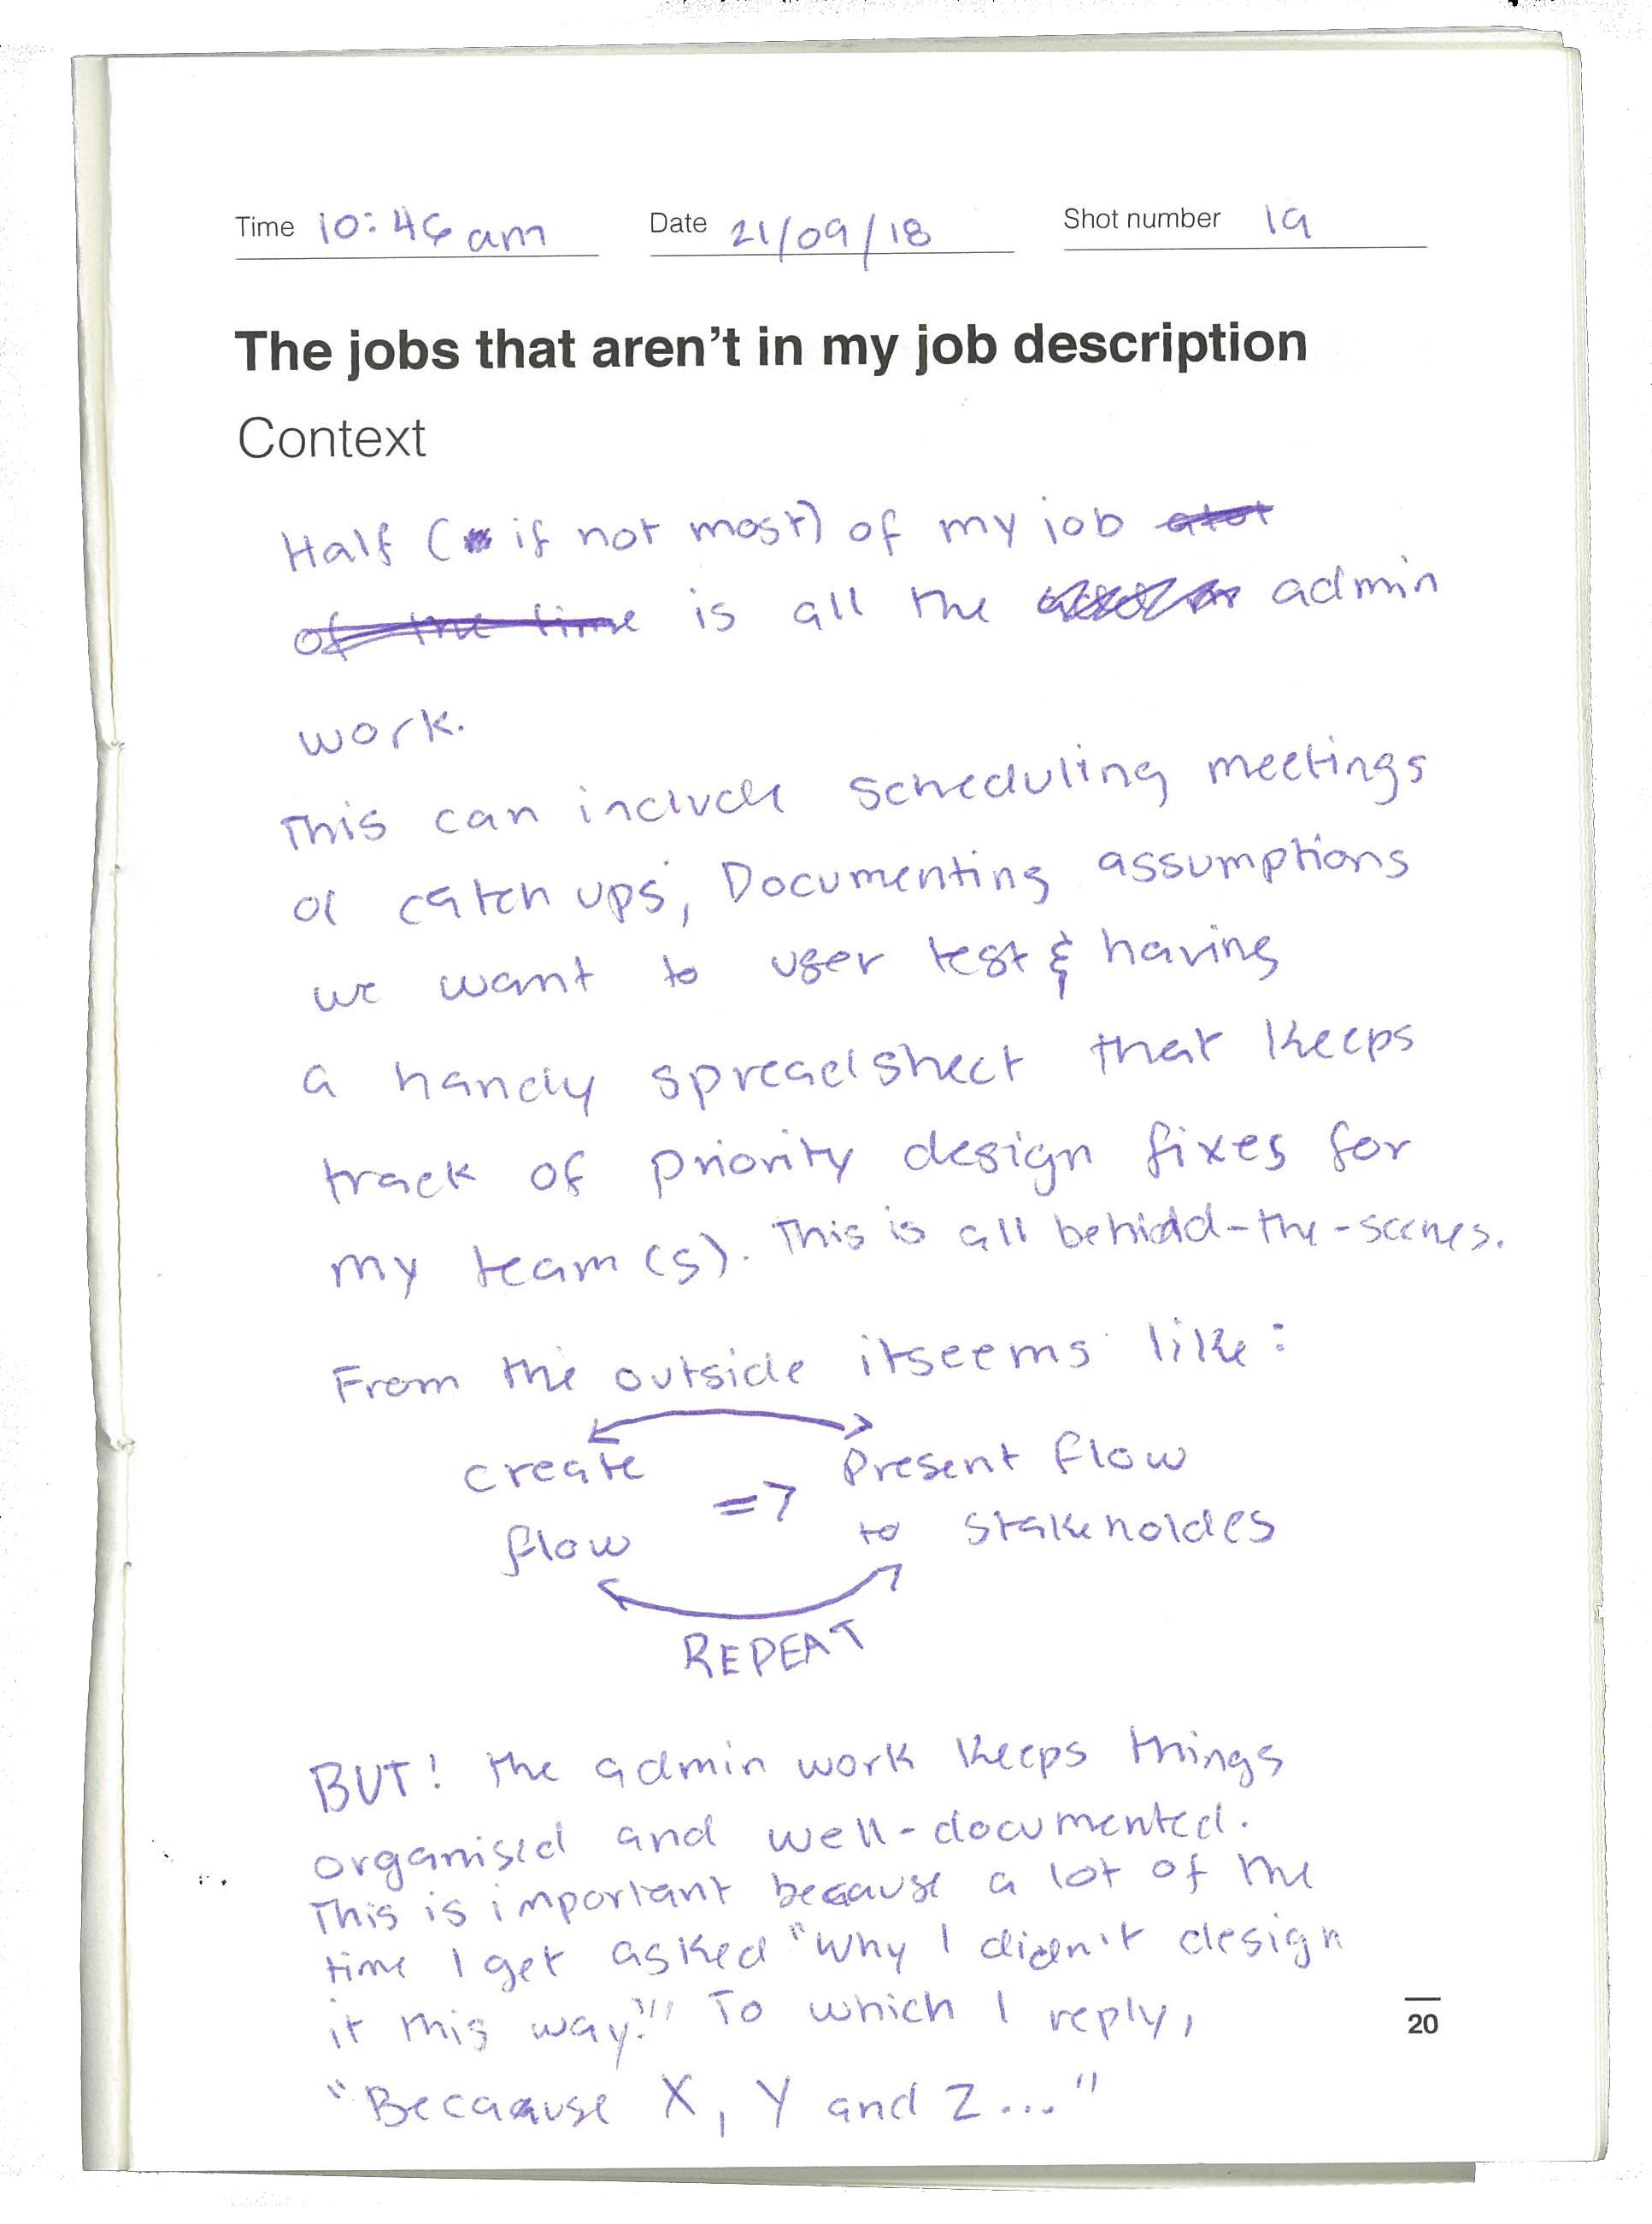 Time 10:46 am Date 21/09/18 Shot number 19
The jobs that aren't in my job description
Context
Half (if not most) of my job
of the time is all the admin
work.
This can include scheduling meetings
or catch ups, Documenting assumptions
we want to user test & having
a handy spreadsheet that keeps
track of priority design fixes for
my team(s). This is all behidd-the-scenes.
From the outside it seems like:
create => Present flow
flow to stakeholdes
REPEAT
BUT! the admin work keeps things
organised and well-documented.
This is important because a lot of the
time I get asked "Why I didn't design
it this way?!" To which I reply,
"Because X, Y and Z..."
20